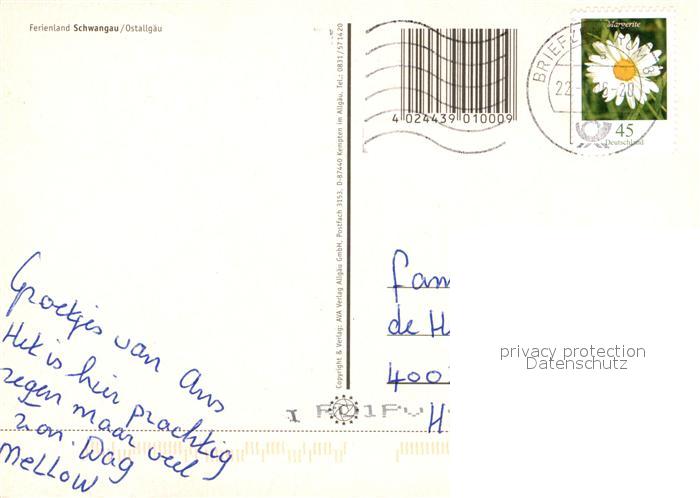 Ferienland Schwangau/Ostallgäu
Groetjes van Ans
Het is hier prachtig
regen maar veel
zon. Dag
Mellow
Copyright & Verlag: AVA Verlag Allgäu GmbH, Postfach 3153, D-87440 Kempten im Allgäu, Tel.: 0831/571420
4 024439 010009
BRIEFZENTRUM
Margerite
45
Deutschland
fam
de H
400
H
privacy protection
Datenschutz